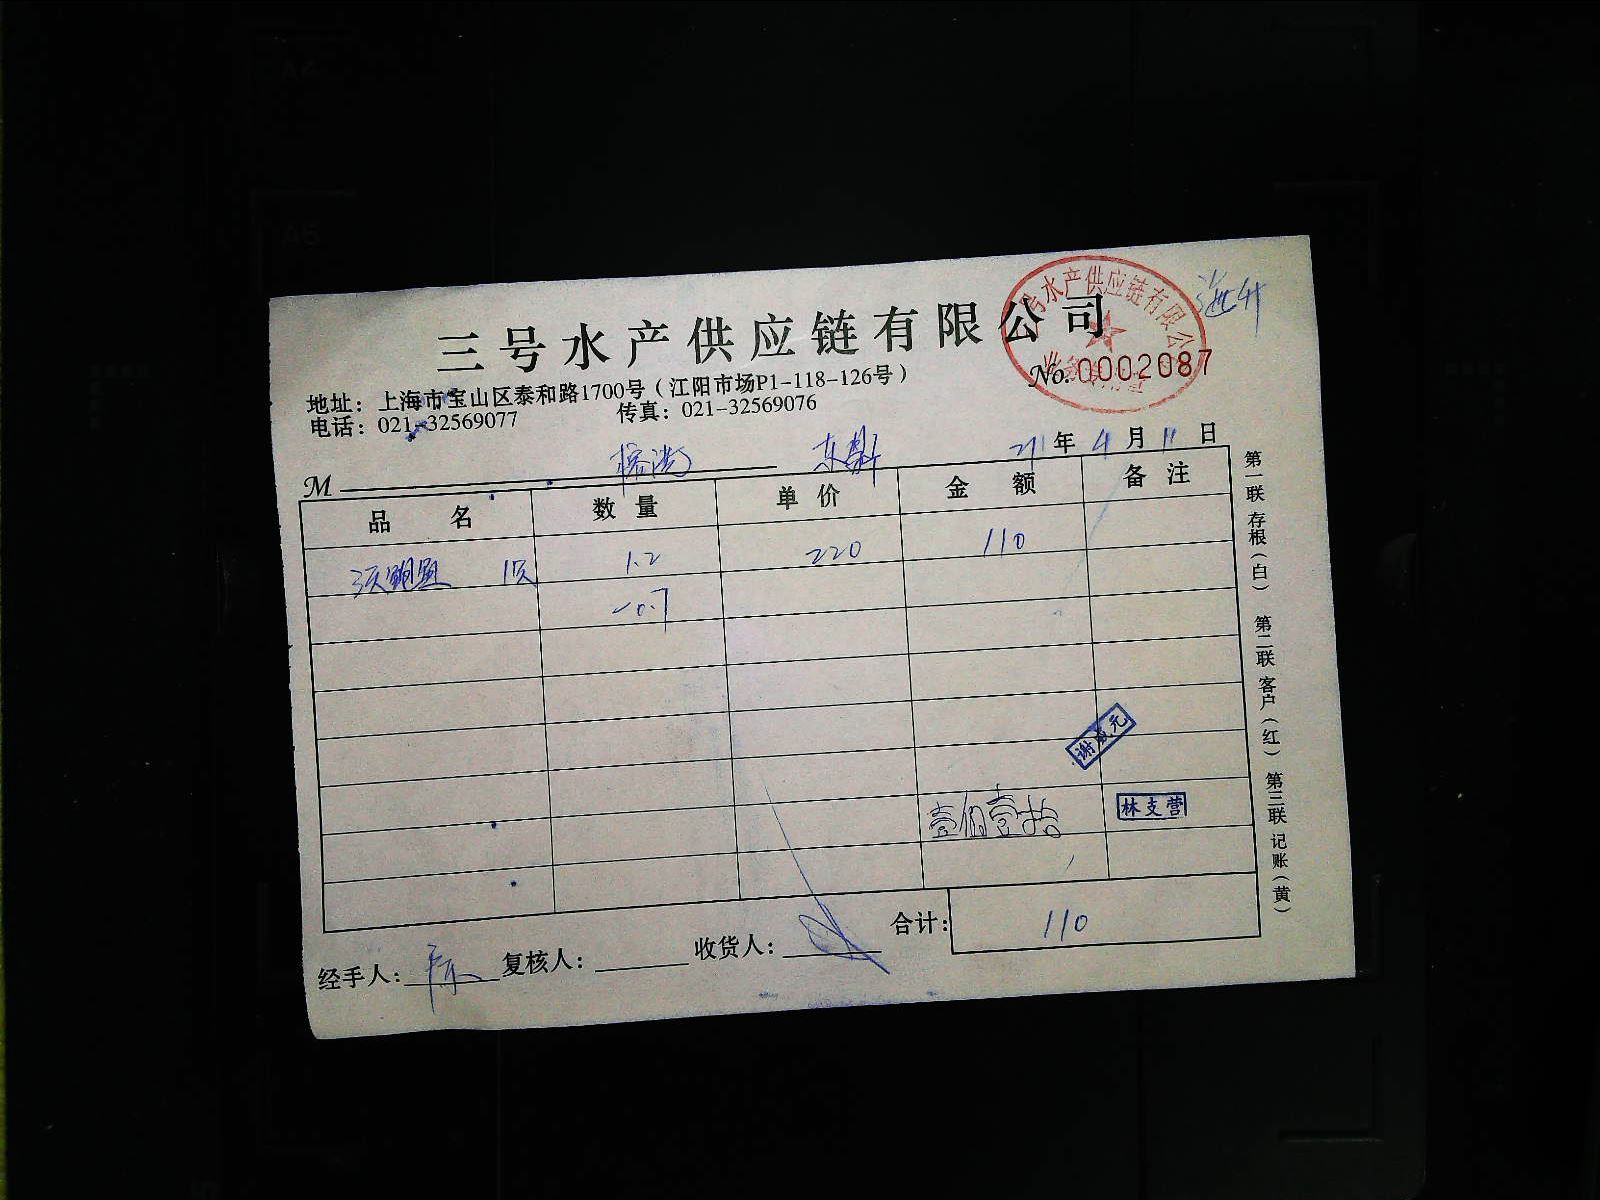 三号水产供应链有限公司
地址：上海市宝山区泰和路1700号（江阳市场P1-118-126号）
No. 0002087
电话：021-32569077 传真：021-32569076
M 年 4 月 11 日
品 名 数 量 单 价 金 额 备 注
1.2 220 110
-0.7
谢成元
壹佰壹拾 林支营
合计： 110
经手人： 复核人： 收货人：
第一联 存根（白） 第二联 客户（红） 第三联 记账（黄）
号水产供应链有限公